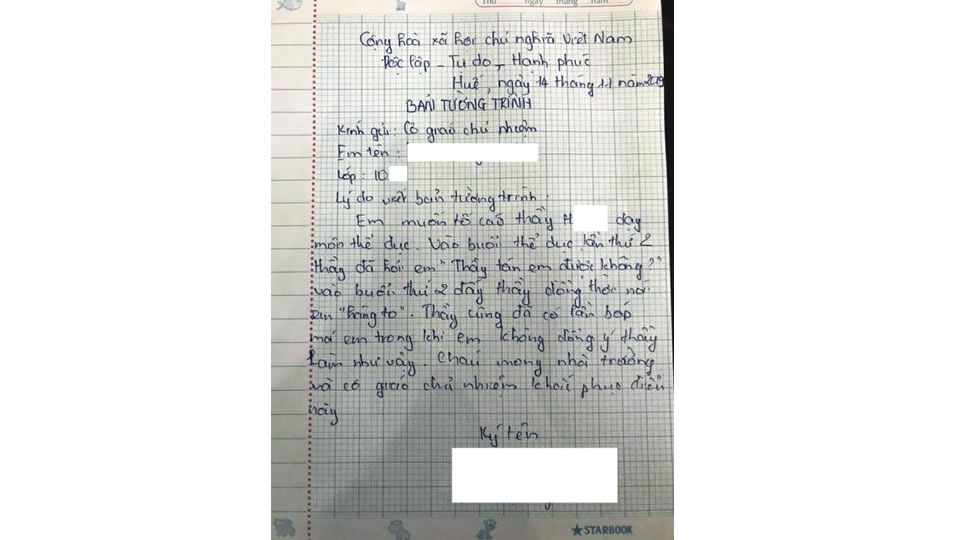 Thứ ngày tháng năm
Cộng hoà xã hội chủ nghĩa Việt Nam
Độc lập - Tự do - Hạnh phúc
Huế, ngày 14 tháng 11 năm 2019
BẢN TƯỜNG TRÌNH
Kính gửi: Cô giáo chủ nhiệm
Em tên:
Lớp: 10
Lý do viết bản tường trình:
Em muốn tố cáo thầy H dạy
môn thể dục. Vào buổi thể dục lần thứ 2
thầy đã hỏi em "Thầy tán em được không?"
vào buổi thứ 2 đấy thầy đồng thời nói
em "háng to". Thầy cũng đã có lần bóp
má em trong khi em không đồng ý thầy
làm như vậy. Cháu mong nhà trường
và cô giáo chủ nhiệm khắc phục điều
này
Ký tên
★STARBOOK